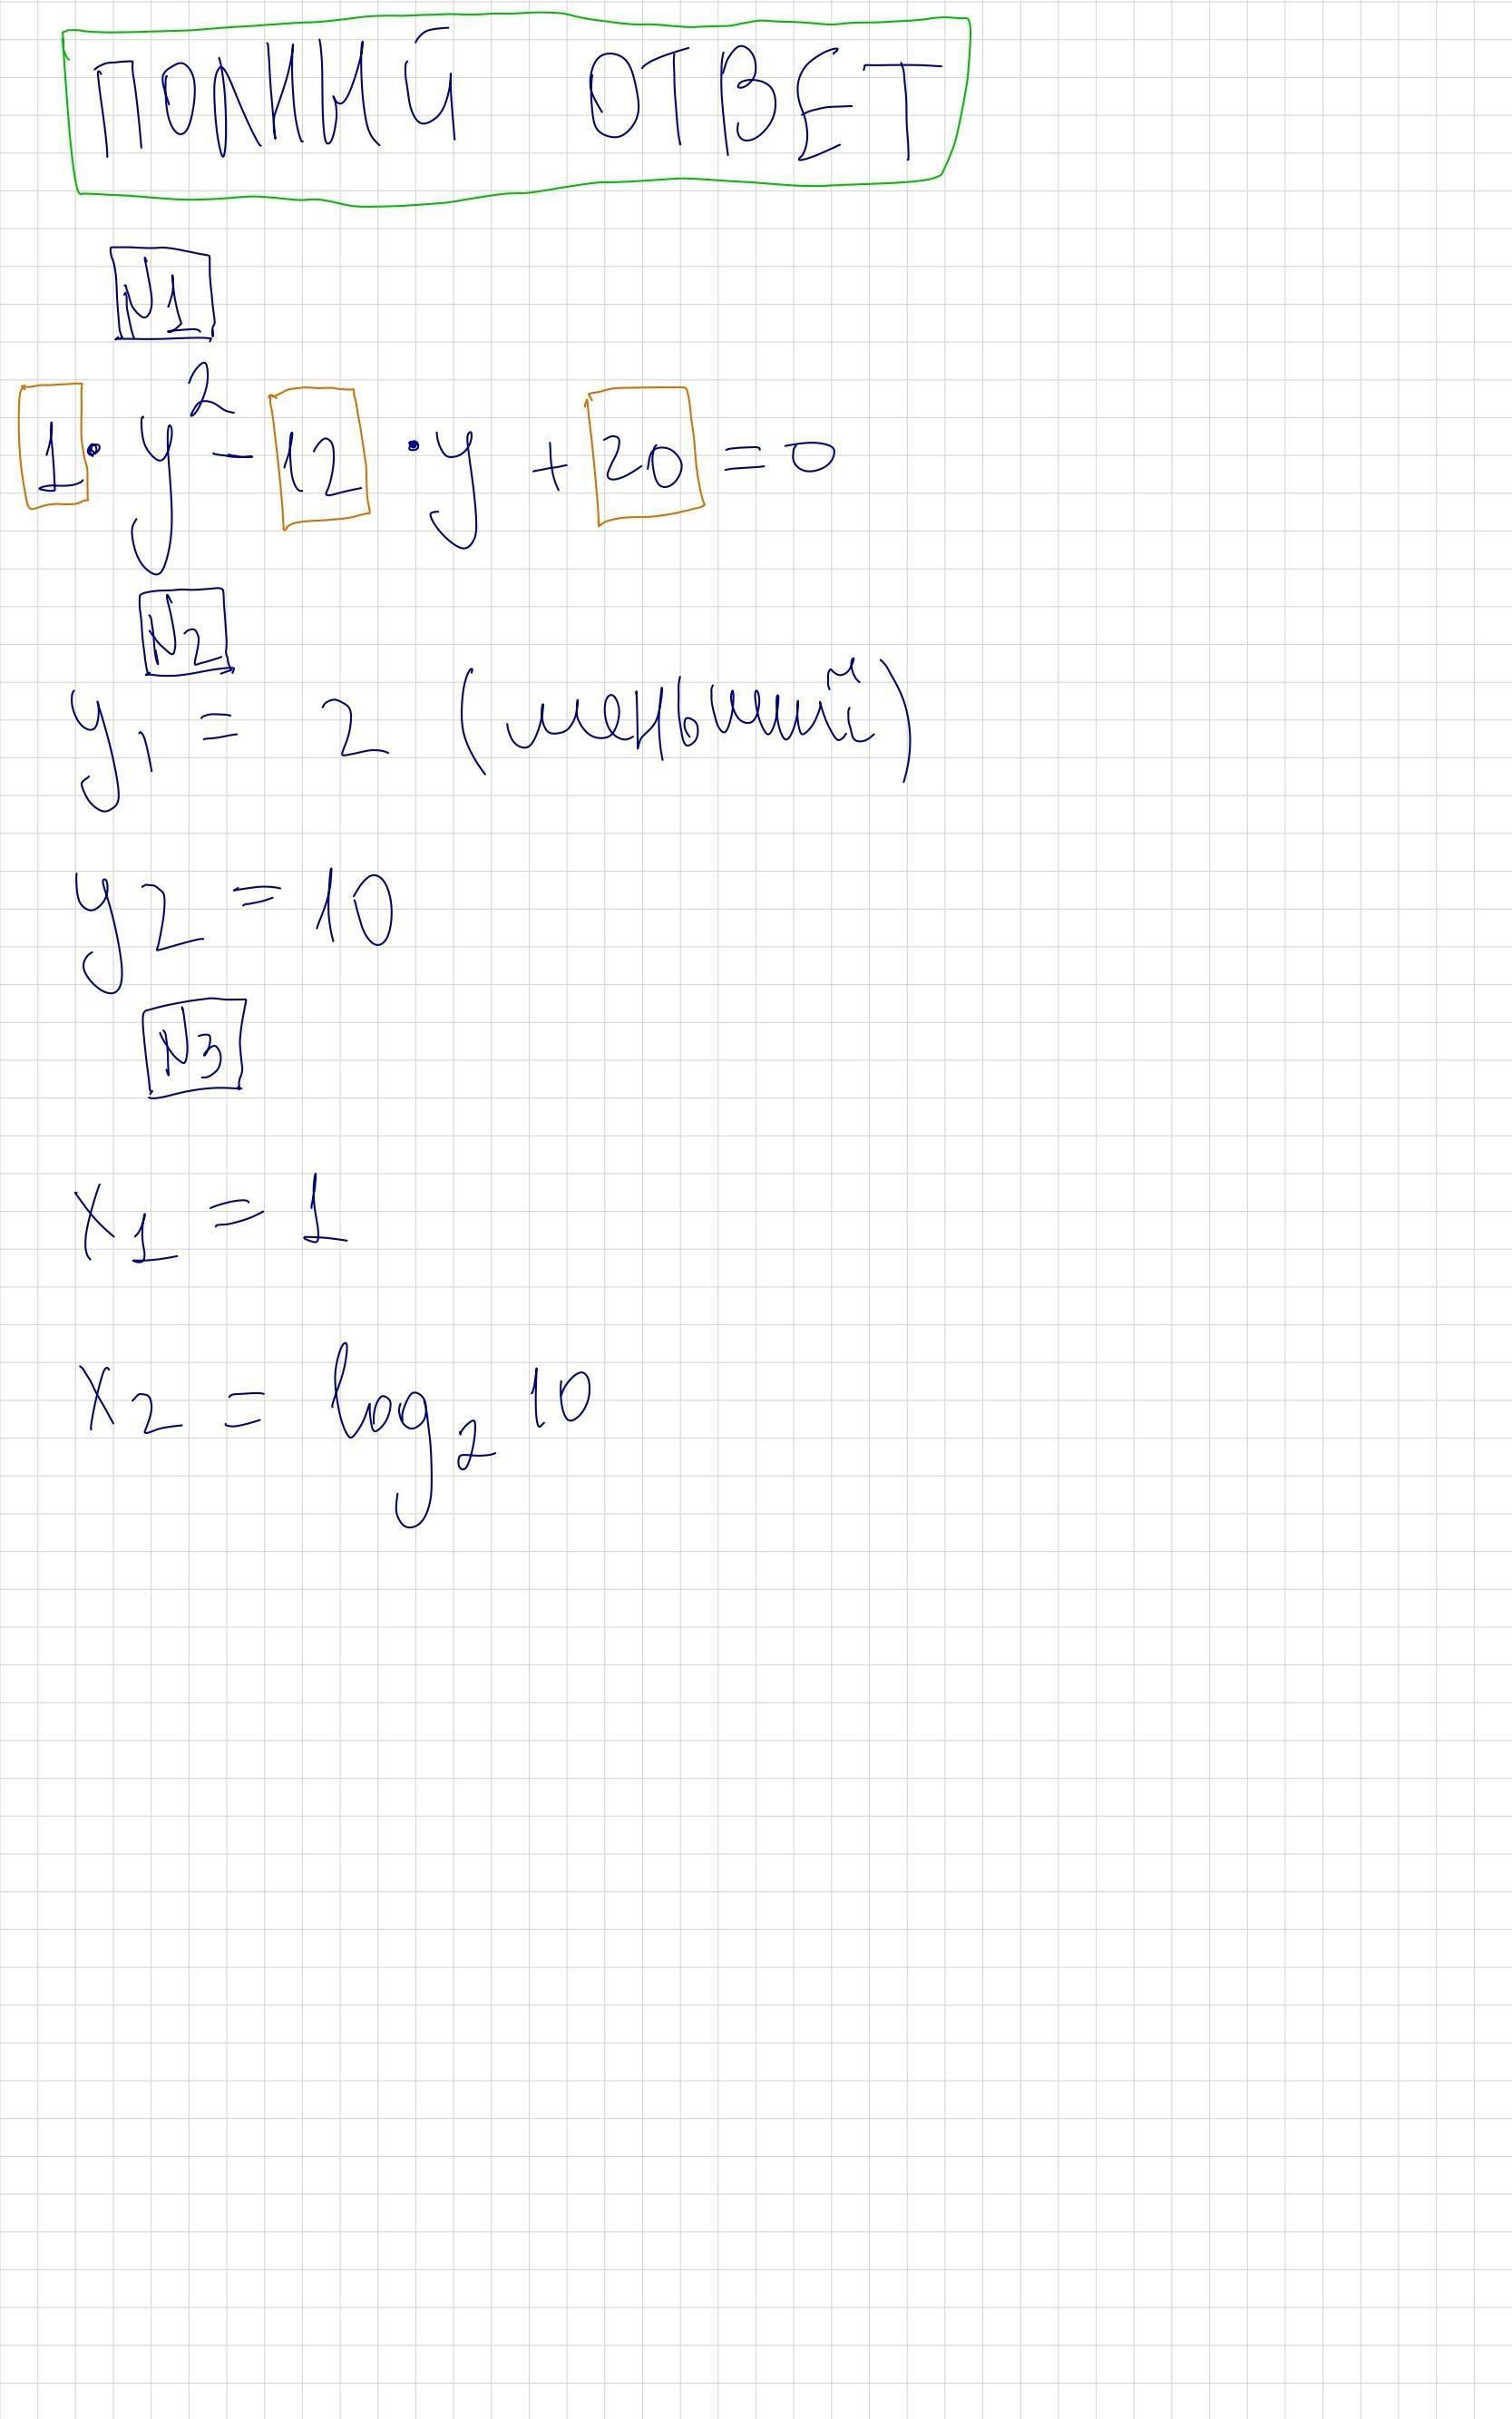 ПОЛНЫЙ ОТВЕТ
N1
1 • y² - 12 • y + 20 = 0
N2
y₁ = 2 (меньший)
y2 = 10
N3
x₁ = 1
x₂ = log₂ 10